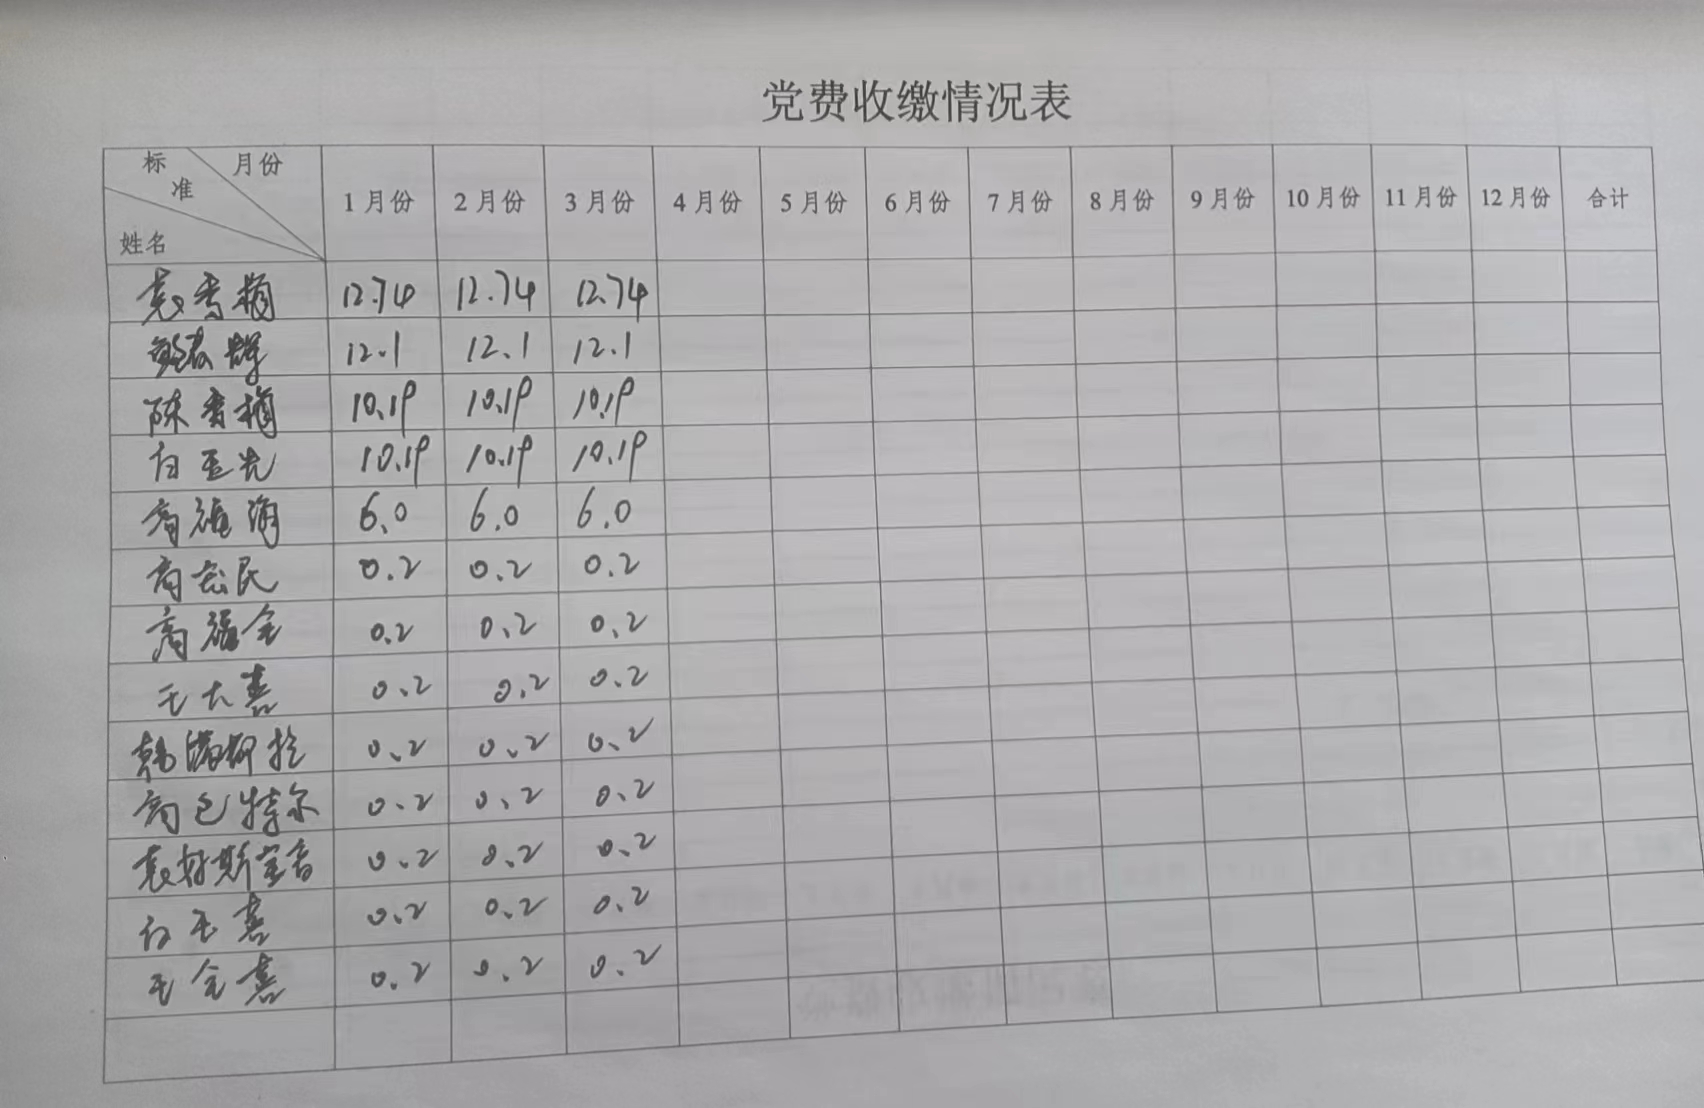 党费收缴情况表
标准 月份 姓名 1月份 2月份 3月份 4月份 5月份 6月份 7月份 8月份 9月份 10月份 11月份 12月份 合计
袁香梅 12.74 12.74 12.74
鲍春辉 12.1 12.1 12.1
陈香梅 10.19 10.19 10.19
白玉光 10.19 10.19 10.19
高福海 6.0 6.0 6.0
高 民 0.2 0.2 0.2
高福全 0.2 0.2 0.2
王大喜 0.2 0.2 0.2
韩满都拉 0.2 0.2 0.2
高巴特尔 0.2 0.2 0.2
0.2 0.2 0.2
白玉喜 0.2 0.2 0.2
王全喜 0.2 0.2 0.2